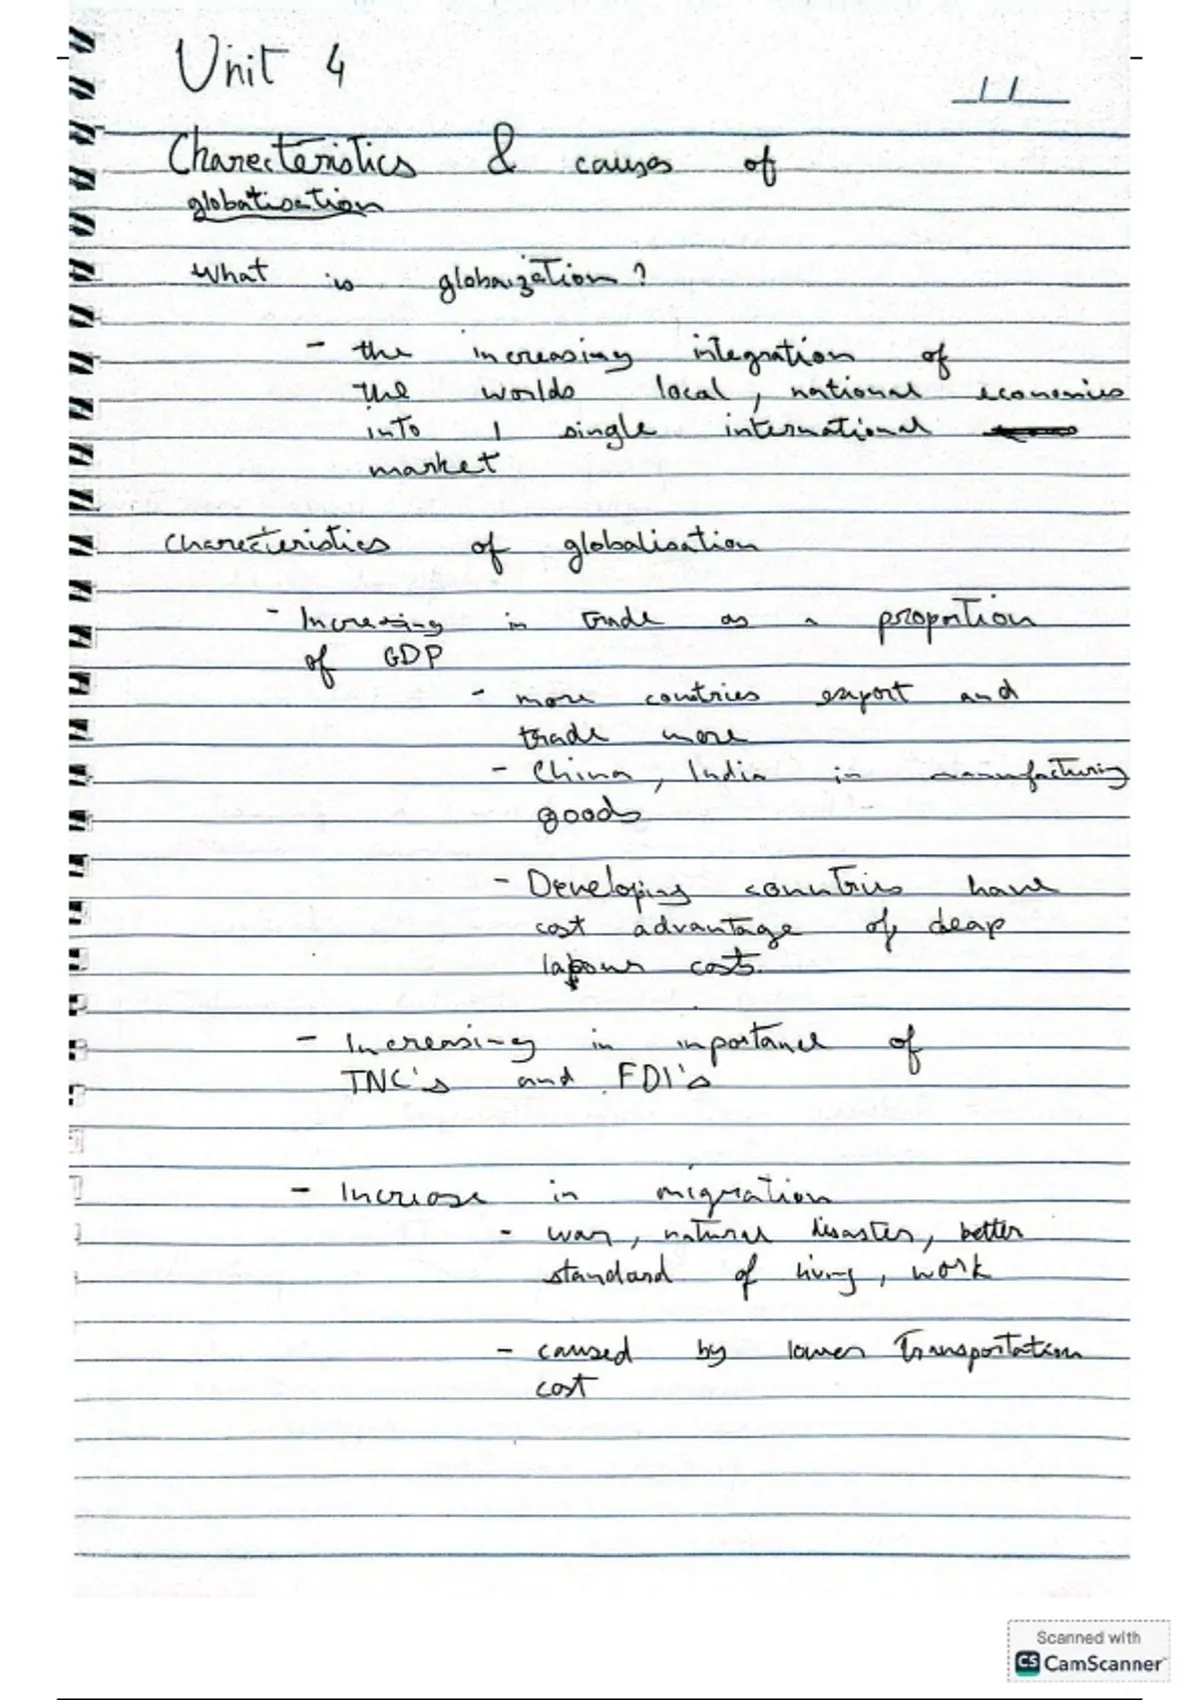 Unit 4
Charecteristics & causes of
globatisation
What is globaization?
- the increasing integration of
the worlds local, national economies
into 1 single international
market
charecteristics of globalisation
- Increasing in trade as a proportion
of GDP
- more countries export and
trade more
- China, India in manufacturing
goods
- Developing countries have
cost advantage of deap
labour costs.
- Increasing in importance of
TNC's and FDI's
- Increase in migration
- war, natural disaster, better
standard of living, work
- caused by lower transportation
cost
Scanned with
CS CamScanner